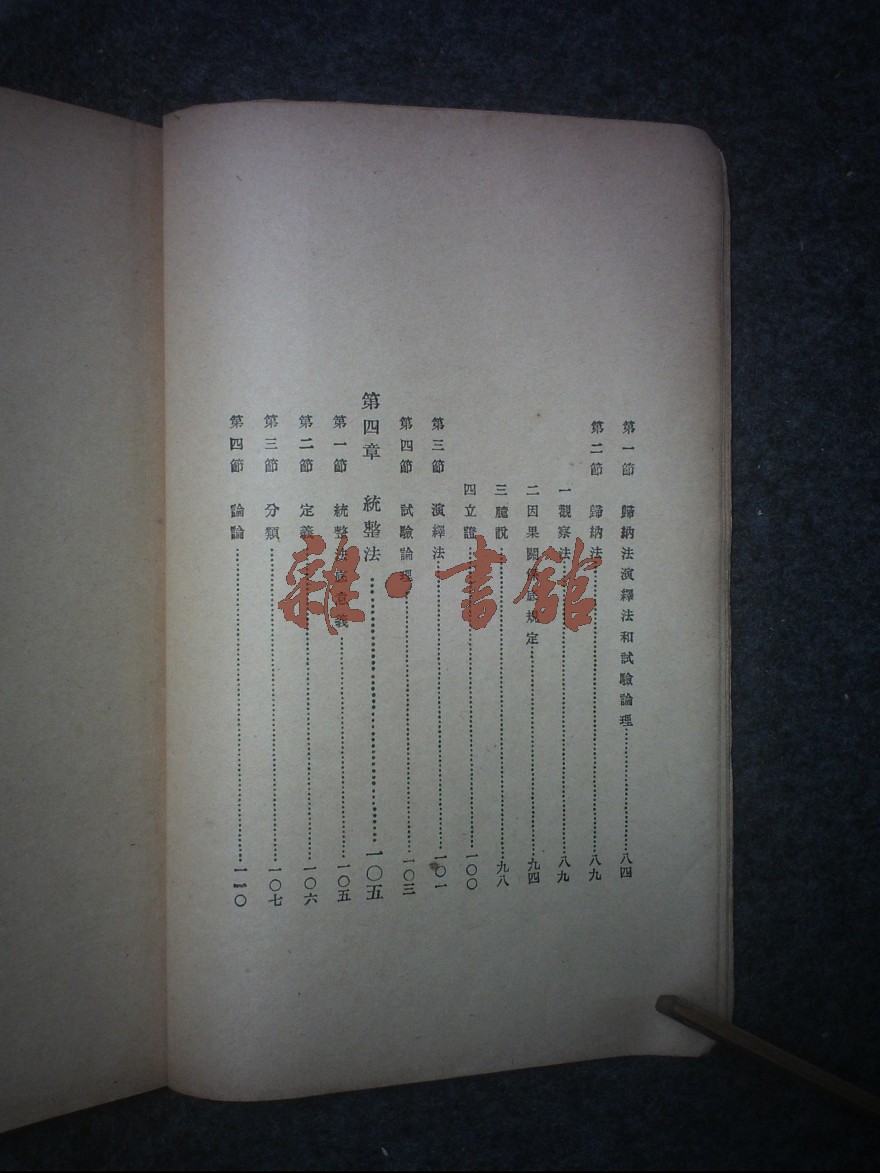 第一節 歸納法演繹法和試驗論理……八四
第二節 歸納法……八九
一觀察法……八九
二因果關係底規定……九四
三臆說……九八
四立證……一〇〇
第三節 演繹法……一〇一
第四節 試驗論理……一〇三
第四章 統整法……一〇五
第一節 統整法底意義……一〇五
第二節 定義……一〇六
第三節 分類……一〇七
第四節 論論……一一〇
雜·書館